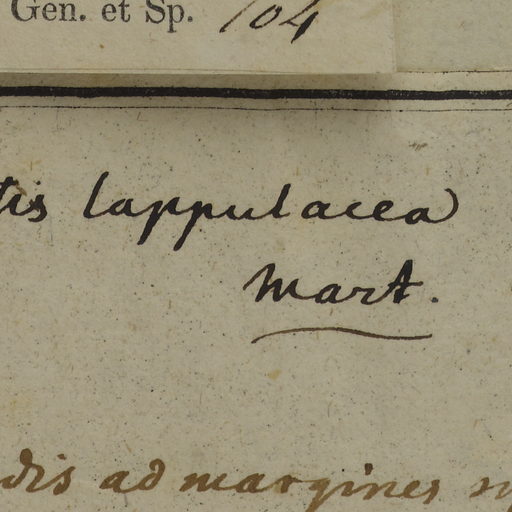 Gen. et Sp. 104
tis lappulacea
Mart.
dis ad margines